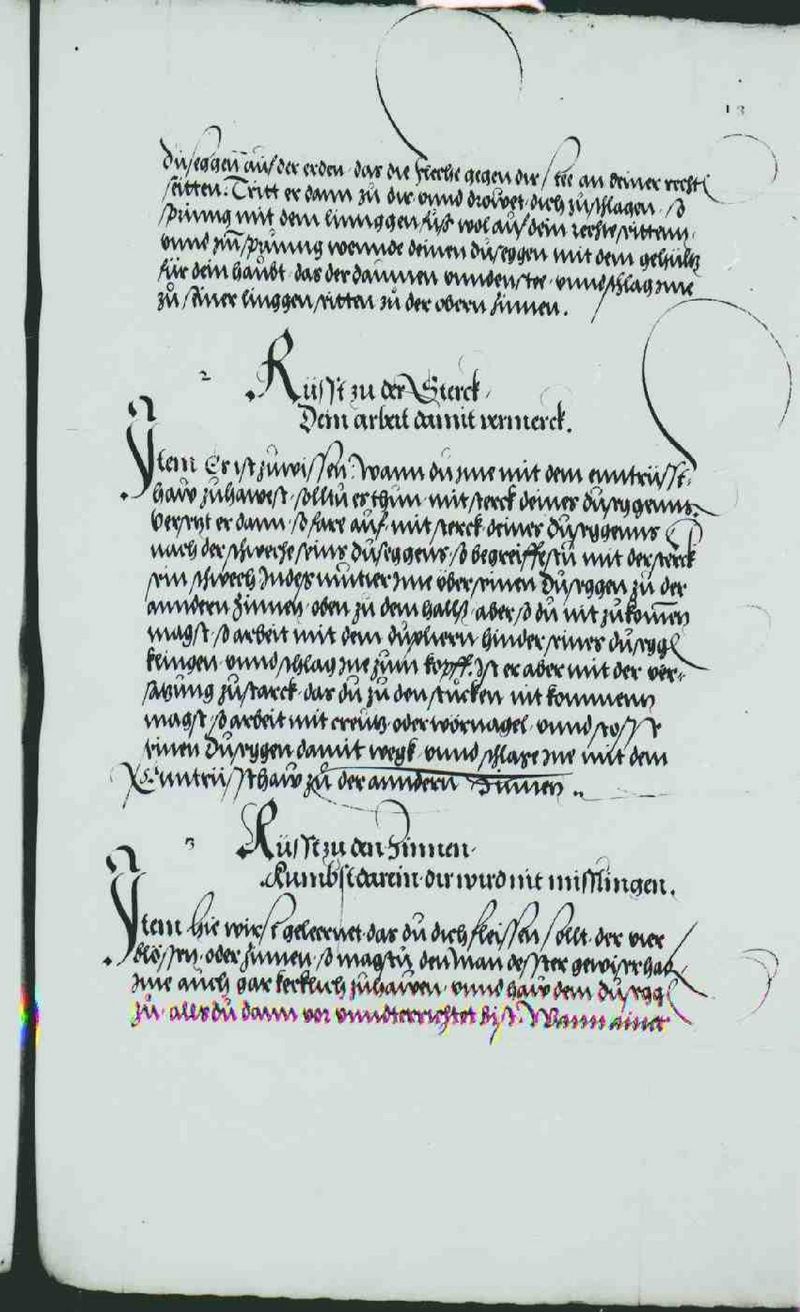 13
duseggen auf der erden das die fleche gegen dir stee an deiner recht
seitten. Tritt er dann zu dir unnd drowet dich zuschlagen so
spring mit dem linnggen fuß wol auf dein rechte sitten
unnd im sprunng wennde deinen duseggen mit dem gehultz
für dein haubt das der daumen unnden stee unnd schlag ime
zu seiner linggen sitten zu der obern Zinnen.
2 Rüsst zu der Sterck
Dein arbeit damit vermerck.
Item Es ist zuwissen Wann du ime mit dem enntrüsst
haw zuhawest solltu es thun mit sterck deines duseggenns
versetzt er dann so fare auf mit sterck deines duseggenns
nach der schweche seins duseggens so begreiffestu mit der sterck
sein schwech Indes mutier ime über seinen duseggen zu der
anndern Zinnen oben zu dem hallß aber so du nit zukomen
magst so arbeit mit dem dupliern hinder seines dusegg
klingen unnd schlag ime zum kopff. Ist er aber mit der ver-
satzung zu starck das du zu den stucken nit kommenn
magst so arbeit mit creutz oder nagel unnd stosst
seinen duseggen damit wegk unnd schlage ime mit dem
Enntrüssthaw zu der anndern Zinnen
3 Rüsst zu den Zinnen
Kumbst darein dir wird nit misslingen.
Item hie wirst geleernet das du dich fleissen sollt der vier
blössen oder Zinnen so magstu den man desster gewisser hab
ime auch gar kecklich zuhawen unnd haw dem dusegg
zu alls du dann vor unndterrichtet bist. Wann ainer